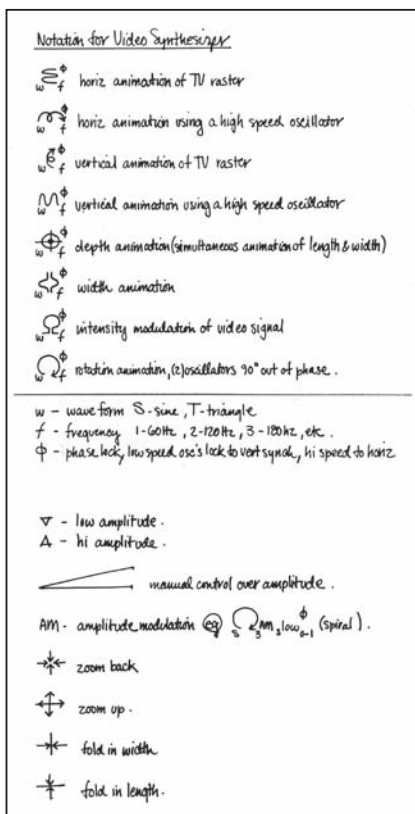 Notation for Video Synthesizer
w f ϕ horiz animation of TV raster
w f ϕ horiz animation using a high speed oscillator
w f ϕ vertical animation of TV raster
w f ϕ vertical animation using a high speed oscillator
w f ϕ depth animation (simultaneous animation of length & width)
w f ϕ width animation
w f ϕ intensity modulation of video signal
w f ϕ rotation animation, (2) oscillators 90° out of phase.
w - wave form S-sine, T-triangle
f - frequency 1-60Hz, 2-120Hz, 3-180hz, etc.
ϕ - phase lock, low speed osc's lock to vert synch, hi speed to horiz
▽ - low amplitude.
△ - hi amplitude.
manual control over amplitude.
AM - amplitude modulation eg S 3 AM, low ϕ 0-1 (spiral).
zoom back
zoom up.
fold in width
fold in length.